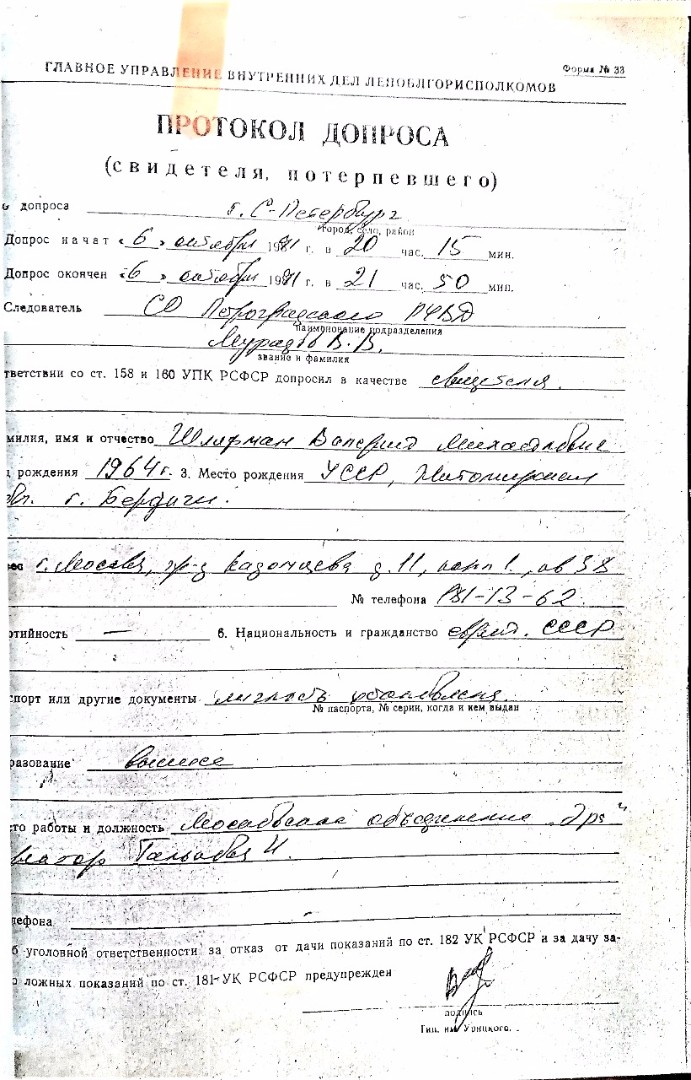 Форма № 33
ГЛАВНОЕ УПРАВЛЕНИЕ ВНУТРЕННИХ ДЕЛ ЛЕНОБЛГОРИСПОЛКОМОВ
ПРОТОКОЛ ДОПРОСА
(свидетеля, потерпевшего)
допроса г. С-Петербург
город, село, район
Допрос начат «6» октября 1991 г. в 20 час. 15 мин.
Допрос окончен «6» октября 1991 г. в 21 час. 50 мин.
Следователь СО Петроградского РУВД
наименование подразделения
В.В.
звание и фамилия
тветствии со ст. 158 и 160 УПК РСФСР допросил в качестве свидетеля.
милия, имя и отчество Шляфман Валерий Михайлович
рождения 1964 г. 3. Место рождения УССР, Житомирская
обл. г. Бердичи.
ес г. Москва, пр-д Кадомцева д. 11, корп 1., кв 38
№ телефона 181-13-62
ртийность — 6. Национальность и гражданство еврей. СССР
спорт или другие документы личность установлена.
№ паспорта, № серии, когда и кем выдан
разование высшее
то работы и должность Московское объединение
Талькова И.
лефона –
б уголовной ответственности за отказ от дачи показаний по ст. 182 УК РСФСР и за дачу за-
о ложных показаний по ст. 181 УК РСФСР предупрежден
подпись
Тип. им. Урицкого.